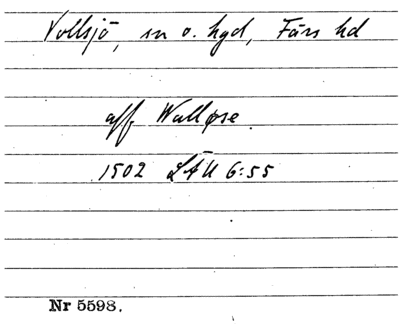 Vollsjö, sn o. hgd, Färs hd
aff Walløse
1502 LÄU 6:55
Nr 5598.